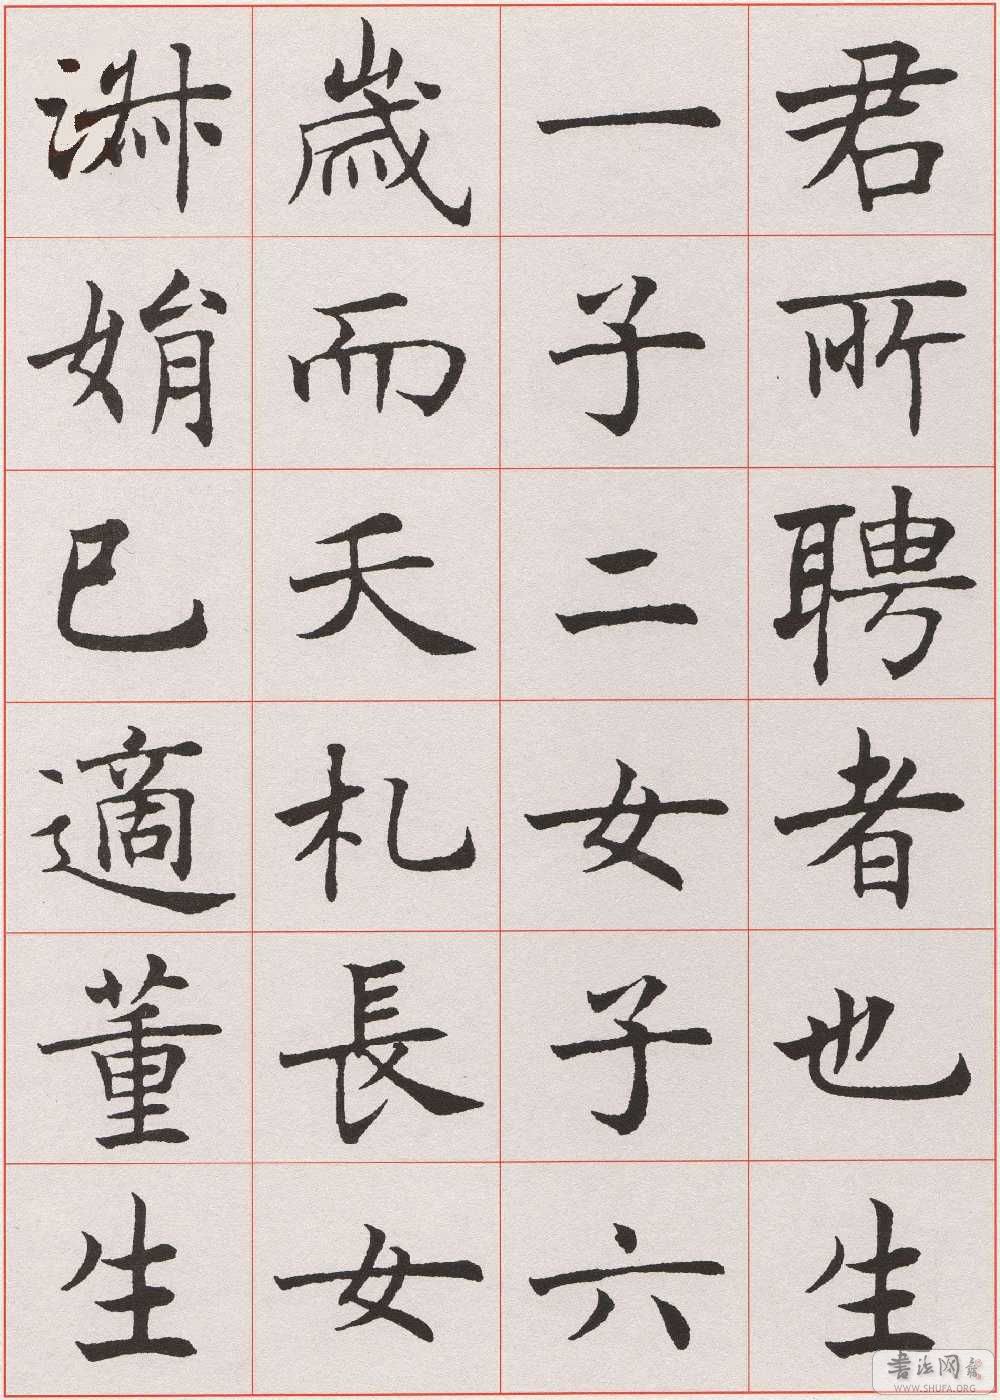 君所聘者也生
一子二女子六
歲而夭札長女
娟已適董生
書法网
WWW.SHUFA.ORG